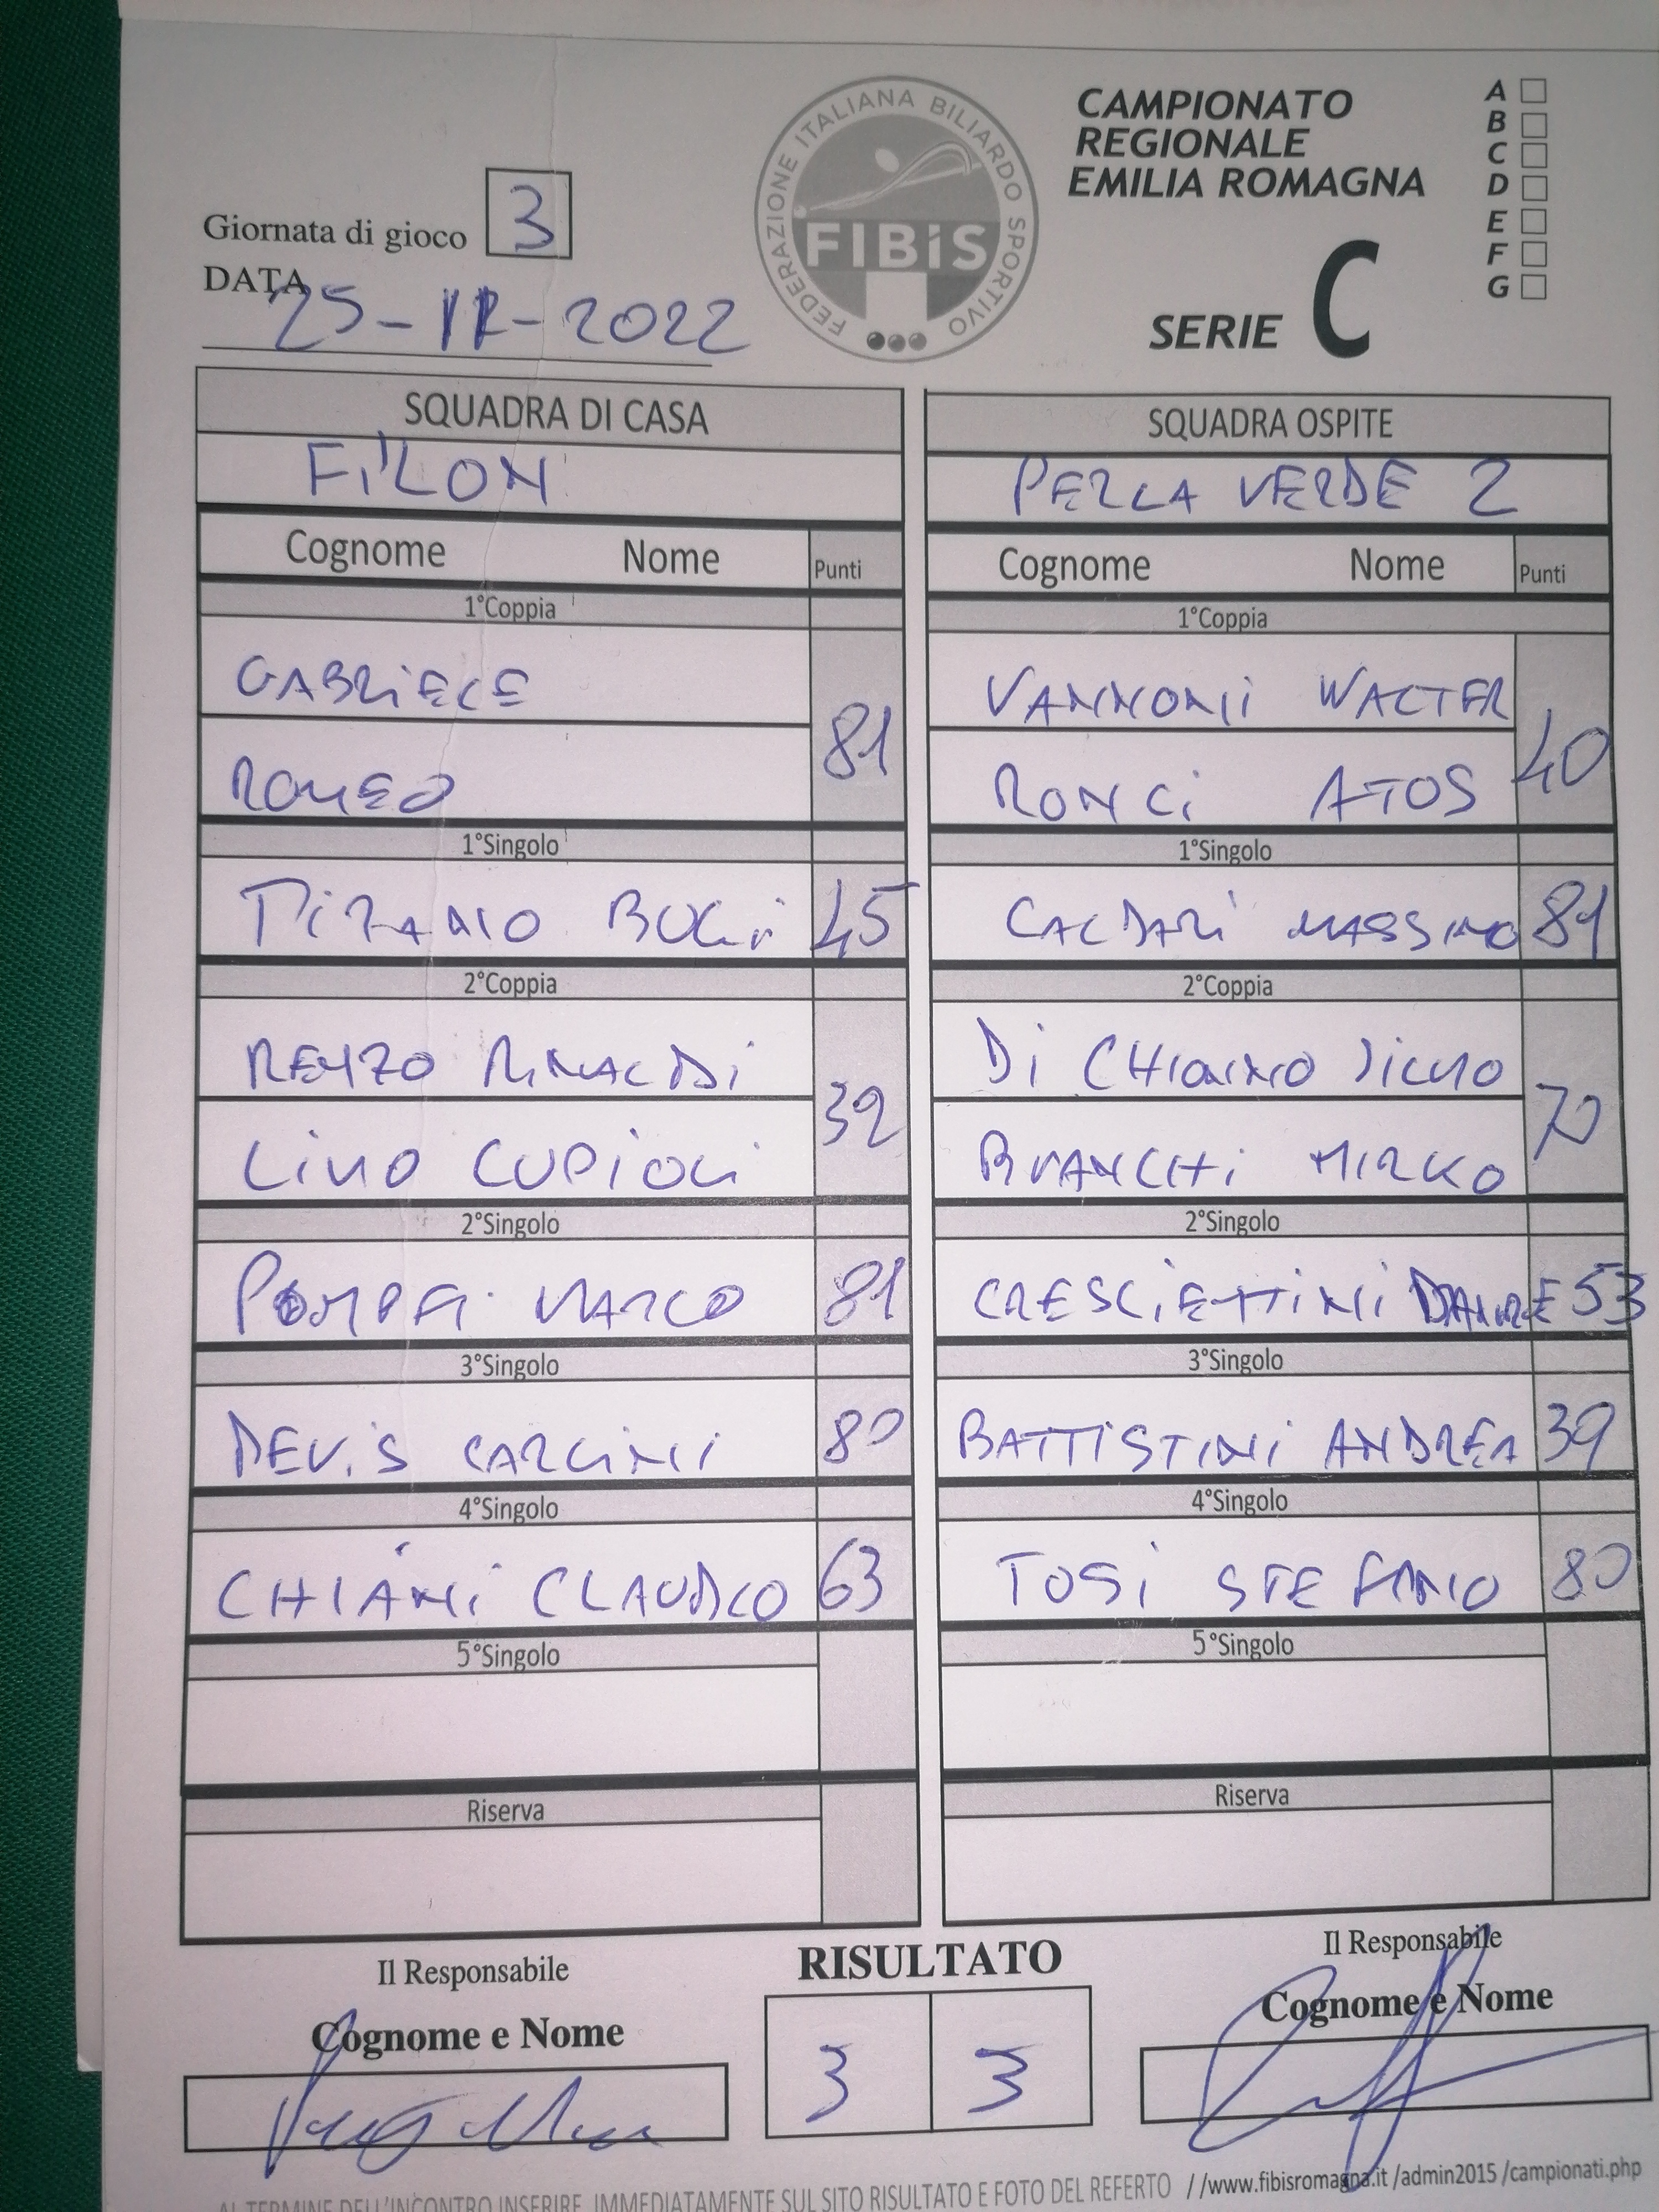 FEDERAZIONE ITALIANA BILIARDO SPORTIVO
FIBiS
CAMPIONATO
REGIONALE
EMILIA ROMAGNA
SERIE C
A
B
C
D
E
F
G
Giornata di gioco 3
DATA
25-11-2022
SQUADRA DI CASA
FILON
Cognome Nome Punti
1°Coppia
GABRIELE
ROMEO
81
1°Singolo
TIZIANO 45
2°Coppia
RENZO RINALDI
LINO CUPIOLI
39
2°Singolo
POMPEI MARCO 81
3°Singolo
DEVIS CARLINI 80
4°Singolo
CHIANI CLAUDIO 63
5°Singolo
Riserva
SQUADRA OSPITE
PERLA VERDE 2
Cognome Nome Punti
1°Coppia
VANNONI WALTER
RONCI ATOS
40
1°Singolo
CALDARI MASSIMO 81
2°Coppia
DI
BIANCHI MIRKO
70
2°Singolo
CRESCIENTINI 53
3°Singolo
BATTISTINI ANDREA 39
4°Singolo
TOSI STEFANO 80
5°Singolo
Riserva
Il Responsabile
Cognome e Nome
RISULTATO
3 3
Il Responsabile
Cognome e Nome
AL TERMINE DELL'INCONTRO INSERIRE IMMEDIATAMENTE SUL SITO RISULTATO E FOTO DEL REFERTO //www.fibisromagna.it /admin2015 /campionati.php